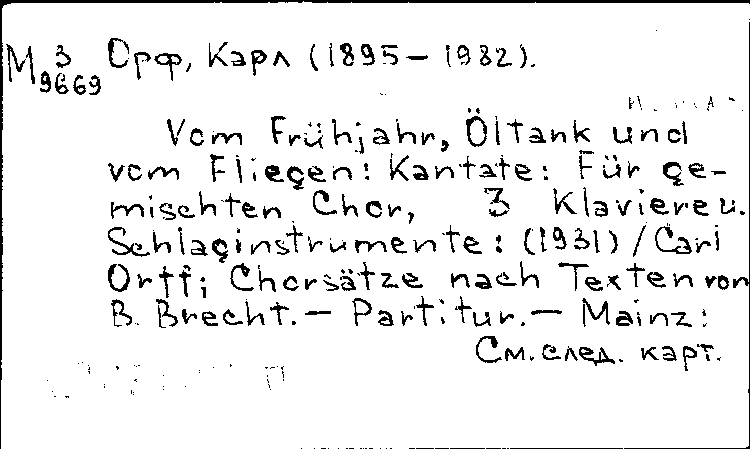 М 3/9669 Орф, Карл (1895 – 1982).
Vom Frühjahr, Öltank und
vom Fliegen: Kantate: Für ge-
mischten Chor, 3 Klaviere u.
Schlaginstrumente: (1931) / Carl
Orff; Chorsätze nach Texten von
B. Brecht. – Partitur. – Mainz:
См. след. карт.